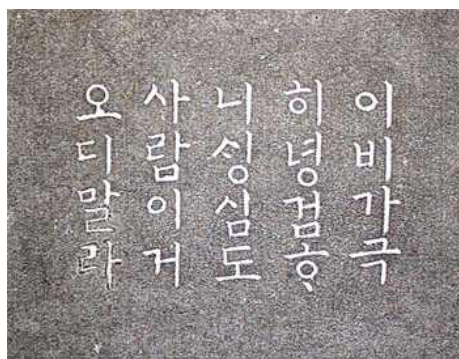 이비가극
히녕검ᄒᆞ
니ᄉᆡᆼ심도
사람이거
오디말라